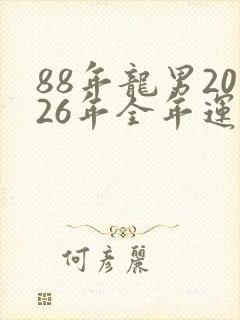 88年龍男20
26年全年運
何彦麗